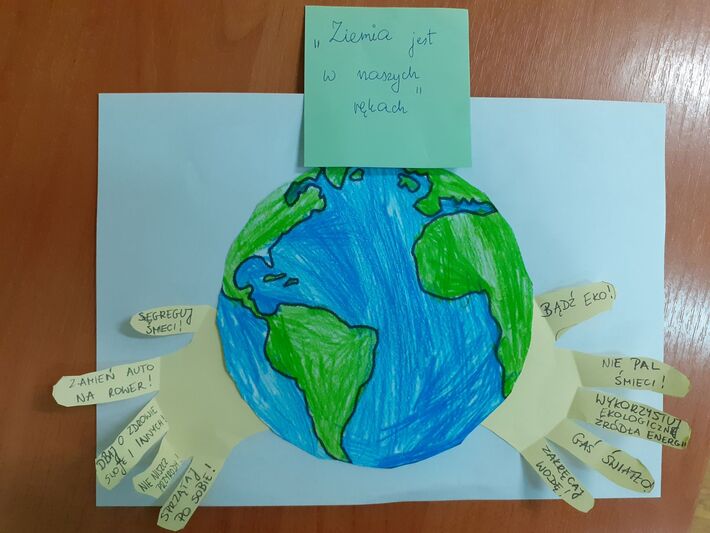 „Ziemia jest
w naszych
rękach"
SĘGREGUJ
ŚMIECI!
ZAMIEŃ AUTO
NA ROWER!
DBAJ O ZDROWIE
SWOJE I INNYCH!
NIE NISZCZ
PRZYRODY!
SPRZĄTAJ
PO SOBIE!
BĄDŹ EKO!
NIE PAL
ŚMIECI!
WYKORZYSTUJ
EKOLOGICZNE
ŹRÓDŁA ENERGII
GAŚ ŚWIATŁO!
ZAKRĘCAJ
WODĘ!